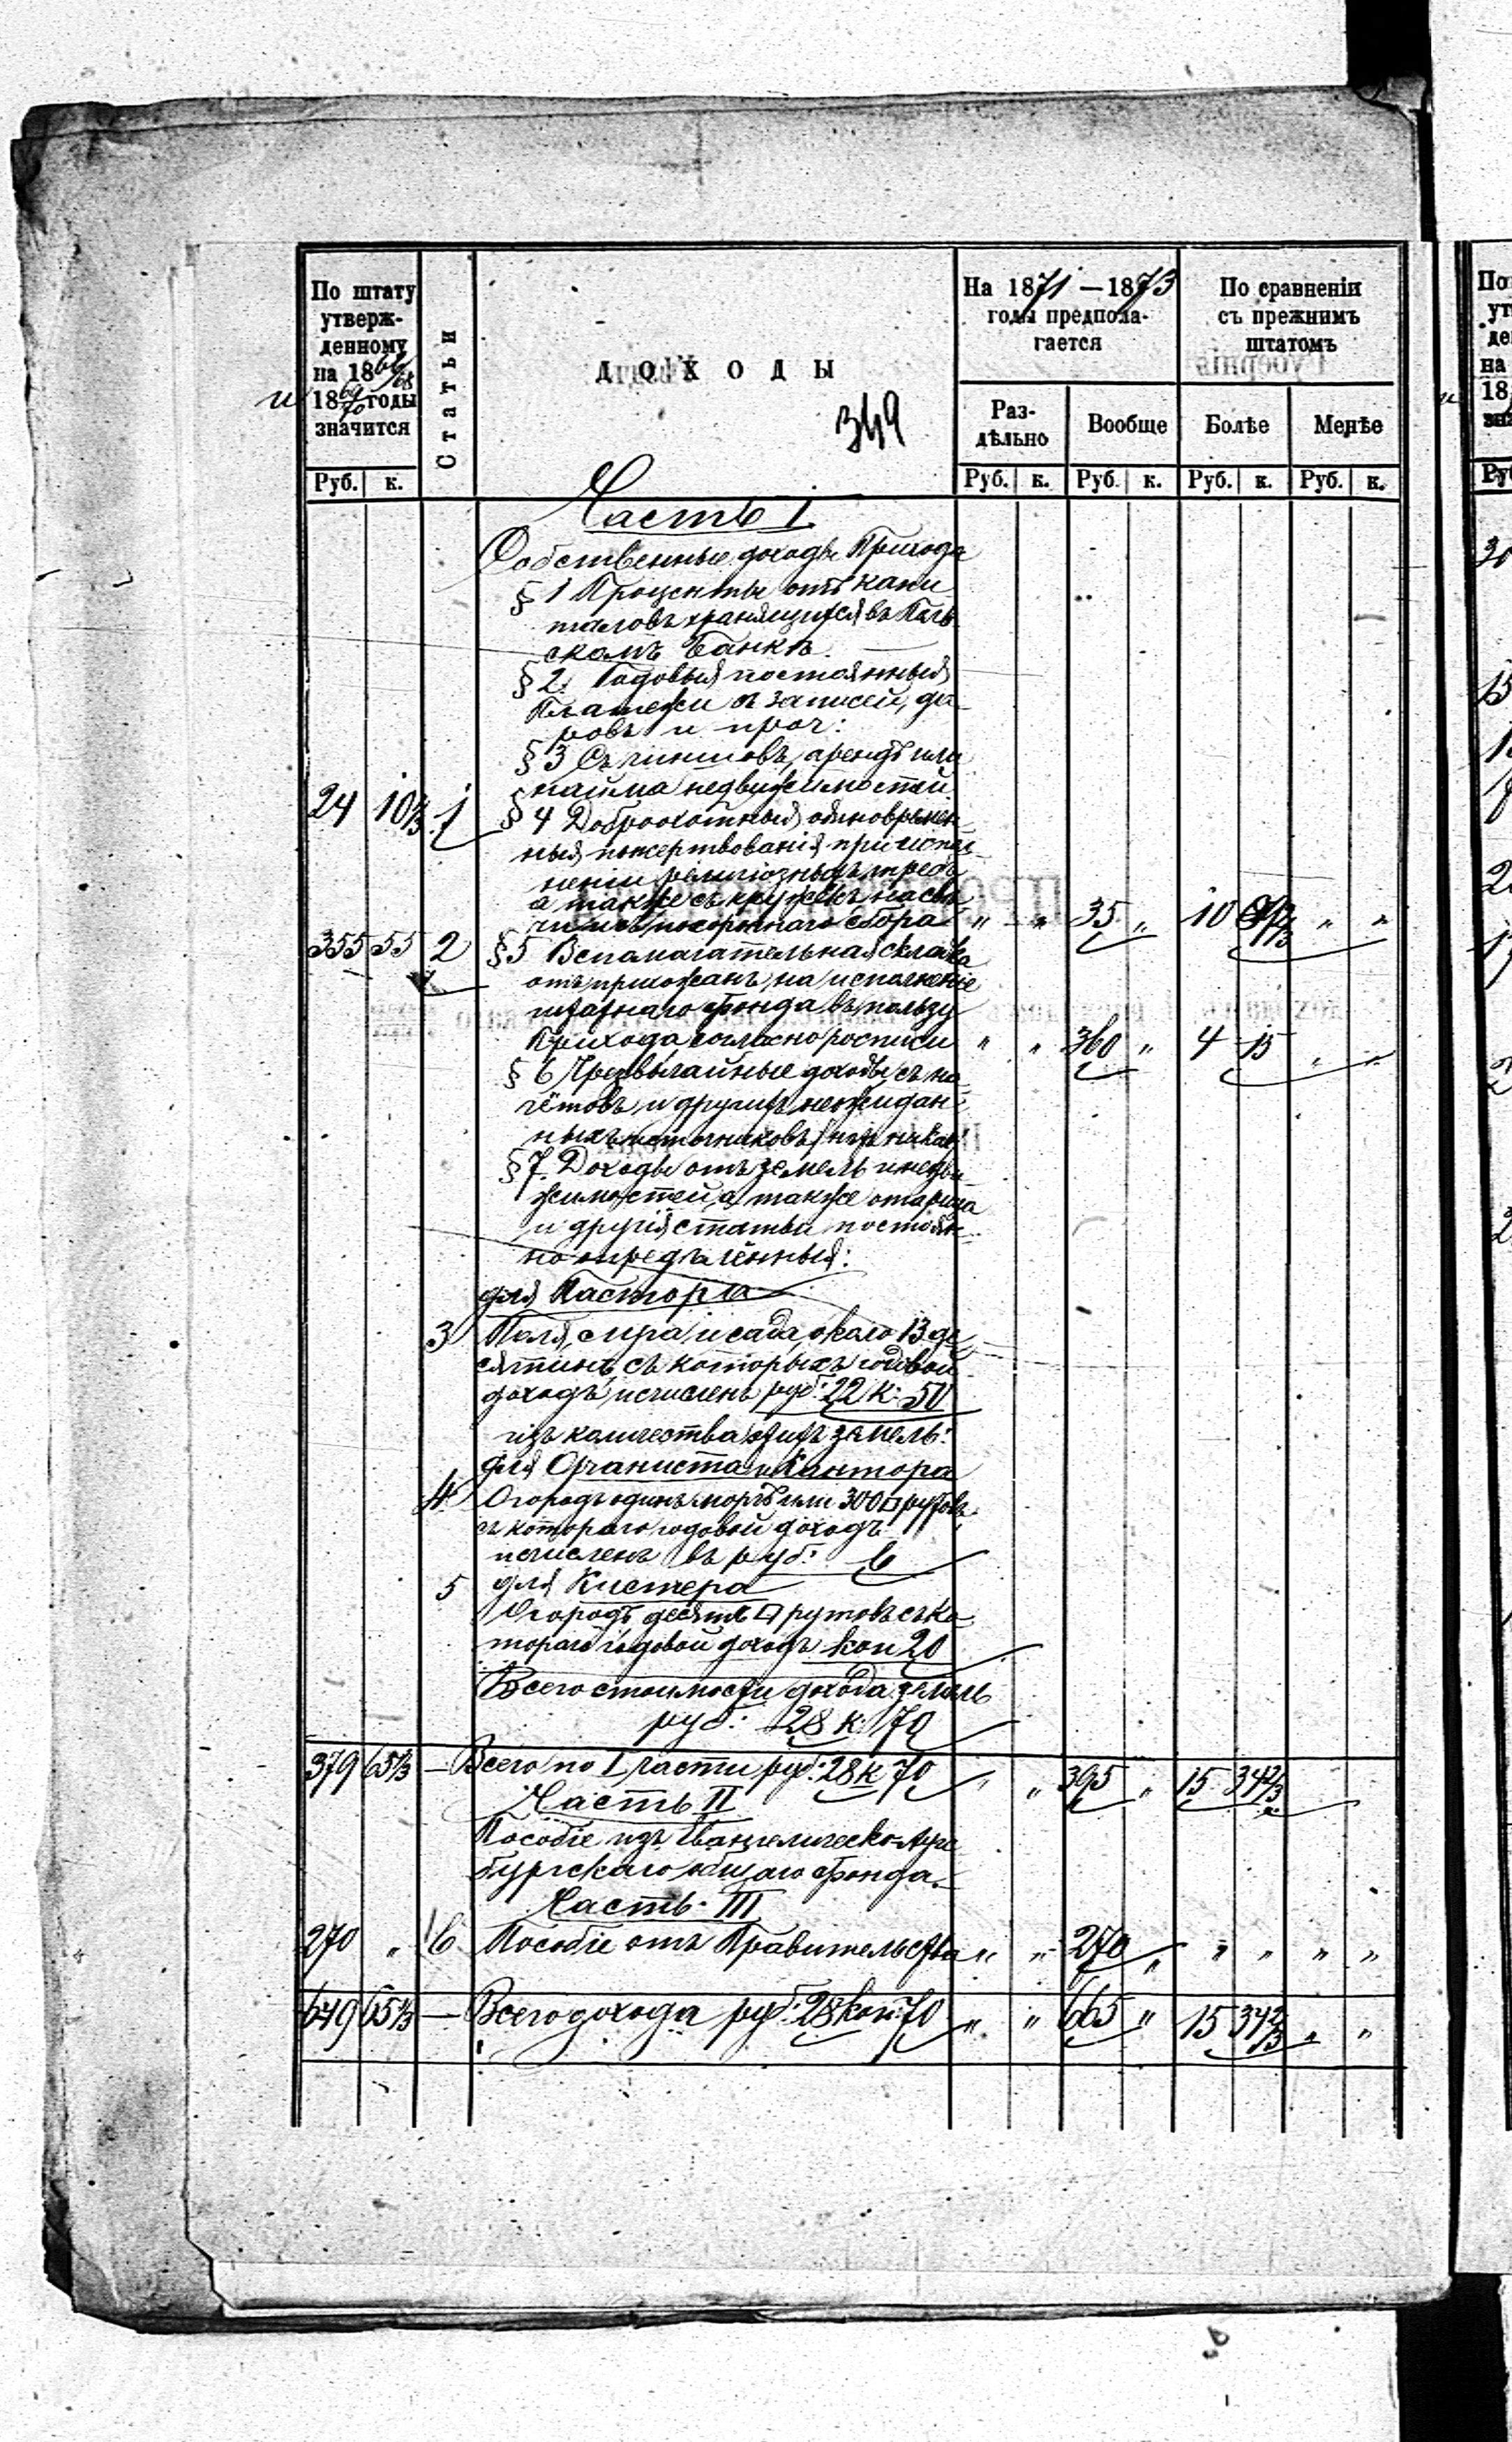 По штату
утверж-
денному
на 1866/68
и 1869/70 годы
значится
Руб. к.
Статьи
ДОХОДЫ
349
На 1871 — 1873
годы предпола-
гается
Раз-
дѣльно
Вообще
Руб. к. Руб. к.
По сравненіи
съ прежнимъ
штатомъ
Болѣе
Менѣе
Руб. к. Руб. к.
Часть I
Собственные доходы Прихода
§ 1 Проценты отъ капи
таловъ хранящихся въ Поль
скомъ Банкѣ.
§ 2. Годовыя постоянныя
Платежи съ записей, да
ровъ и проч:
§ 3 Съ чиншовъ, арендъ или
найма недвижимостей
24 10 1/3 1 § 4 Доброохотныя одновремен
ныя пожертвованія при испол
неніи религіозныхъ требъ
а также съ кружекъ
сбора " " 35 " 10 " "
355 55 2 § 5 Вспомагательная складка
отъ прихожанъ, на исполненіе
штатнаго фонда въ пользу
Прихода согласно росписи " " 360 " 4 15 " "
§ 6 Чрезвычайные доходы съ на
чётовъ и другихъ неожидан
ныхъ источниковъ
§ 7. Доходы отъ земель и недви
жимостей, а также
и другія статьи постоян
но опредѣлённыя:
для Пастора
3 Поля, луга, и сада, около 13 де
сятинъ, съ которыхъ годовой
доходъ исчисленъ руб: 22 к: 50
изъ количества земель:
для Органиста и Кантора
4 Огородъ одинъ моргъ или 300 □ рутовъ
съ котораго годовой доходъ
исчисленъ въ руб: 6
5 для Кистера
Огородъ десять □ рутовъ съ ко
тораго годовой доходъ коп 20
Всего стоимости дохода земель
руб: 28 к: 70
379 65 1/3 — Всего по I части руб: 28 к 70 " " 395 " 15 34 2/3
Часть II
Пособіе изъ Евангелическо-Аугс
бургскаго общаго фонда.
Часть III
270 " 6 Пособіе отъ Правительства " " 270 " " " " "
649 65 1/3 — Всего дохода руб: 28 коп: 70 " " 665 " 15 34 2/3 " "